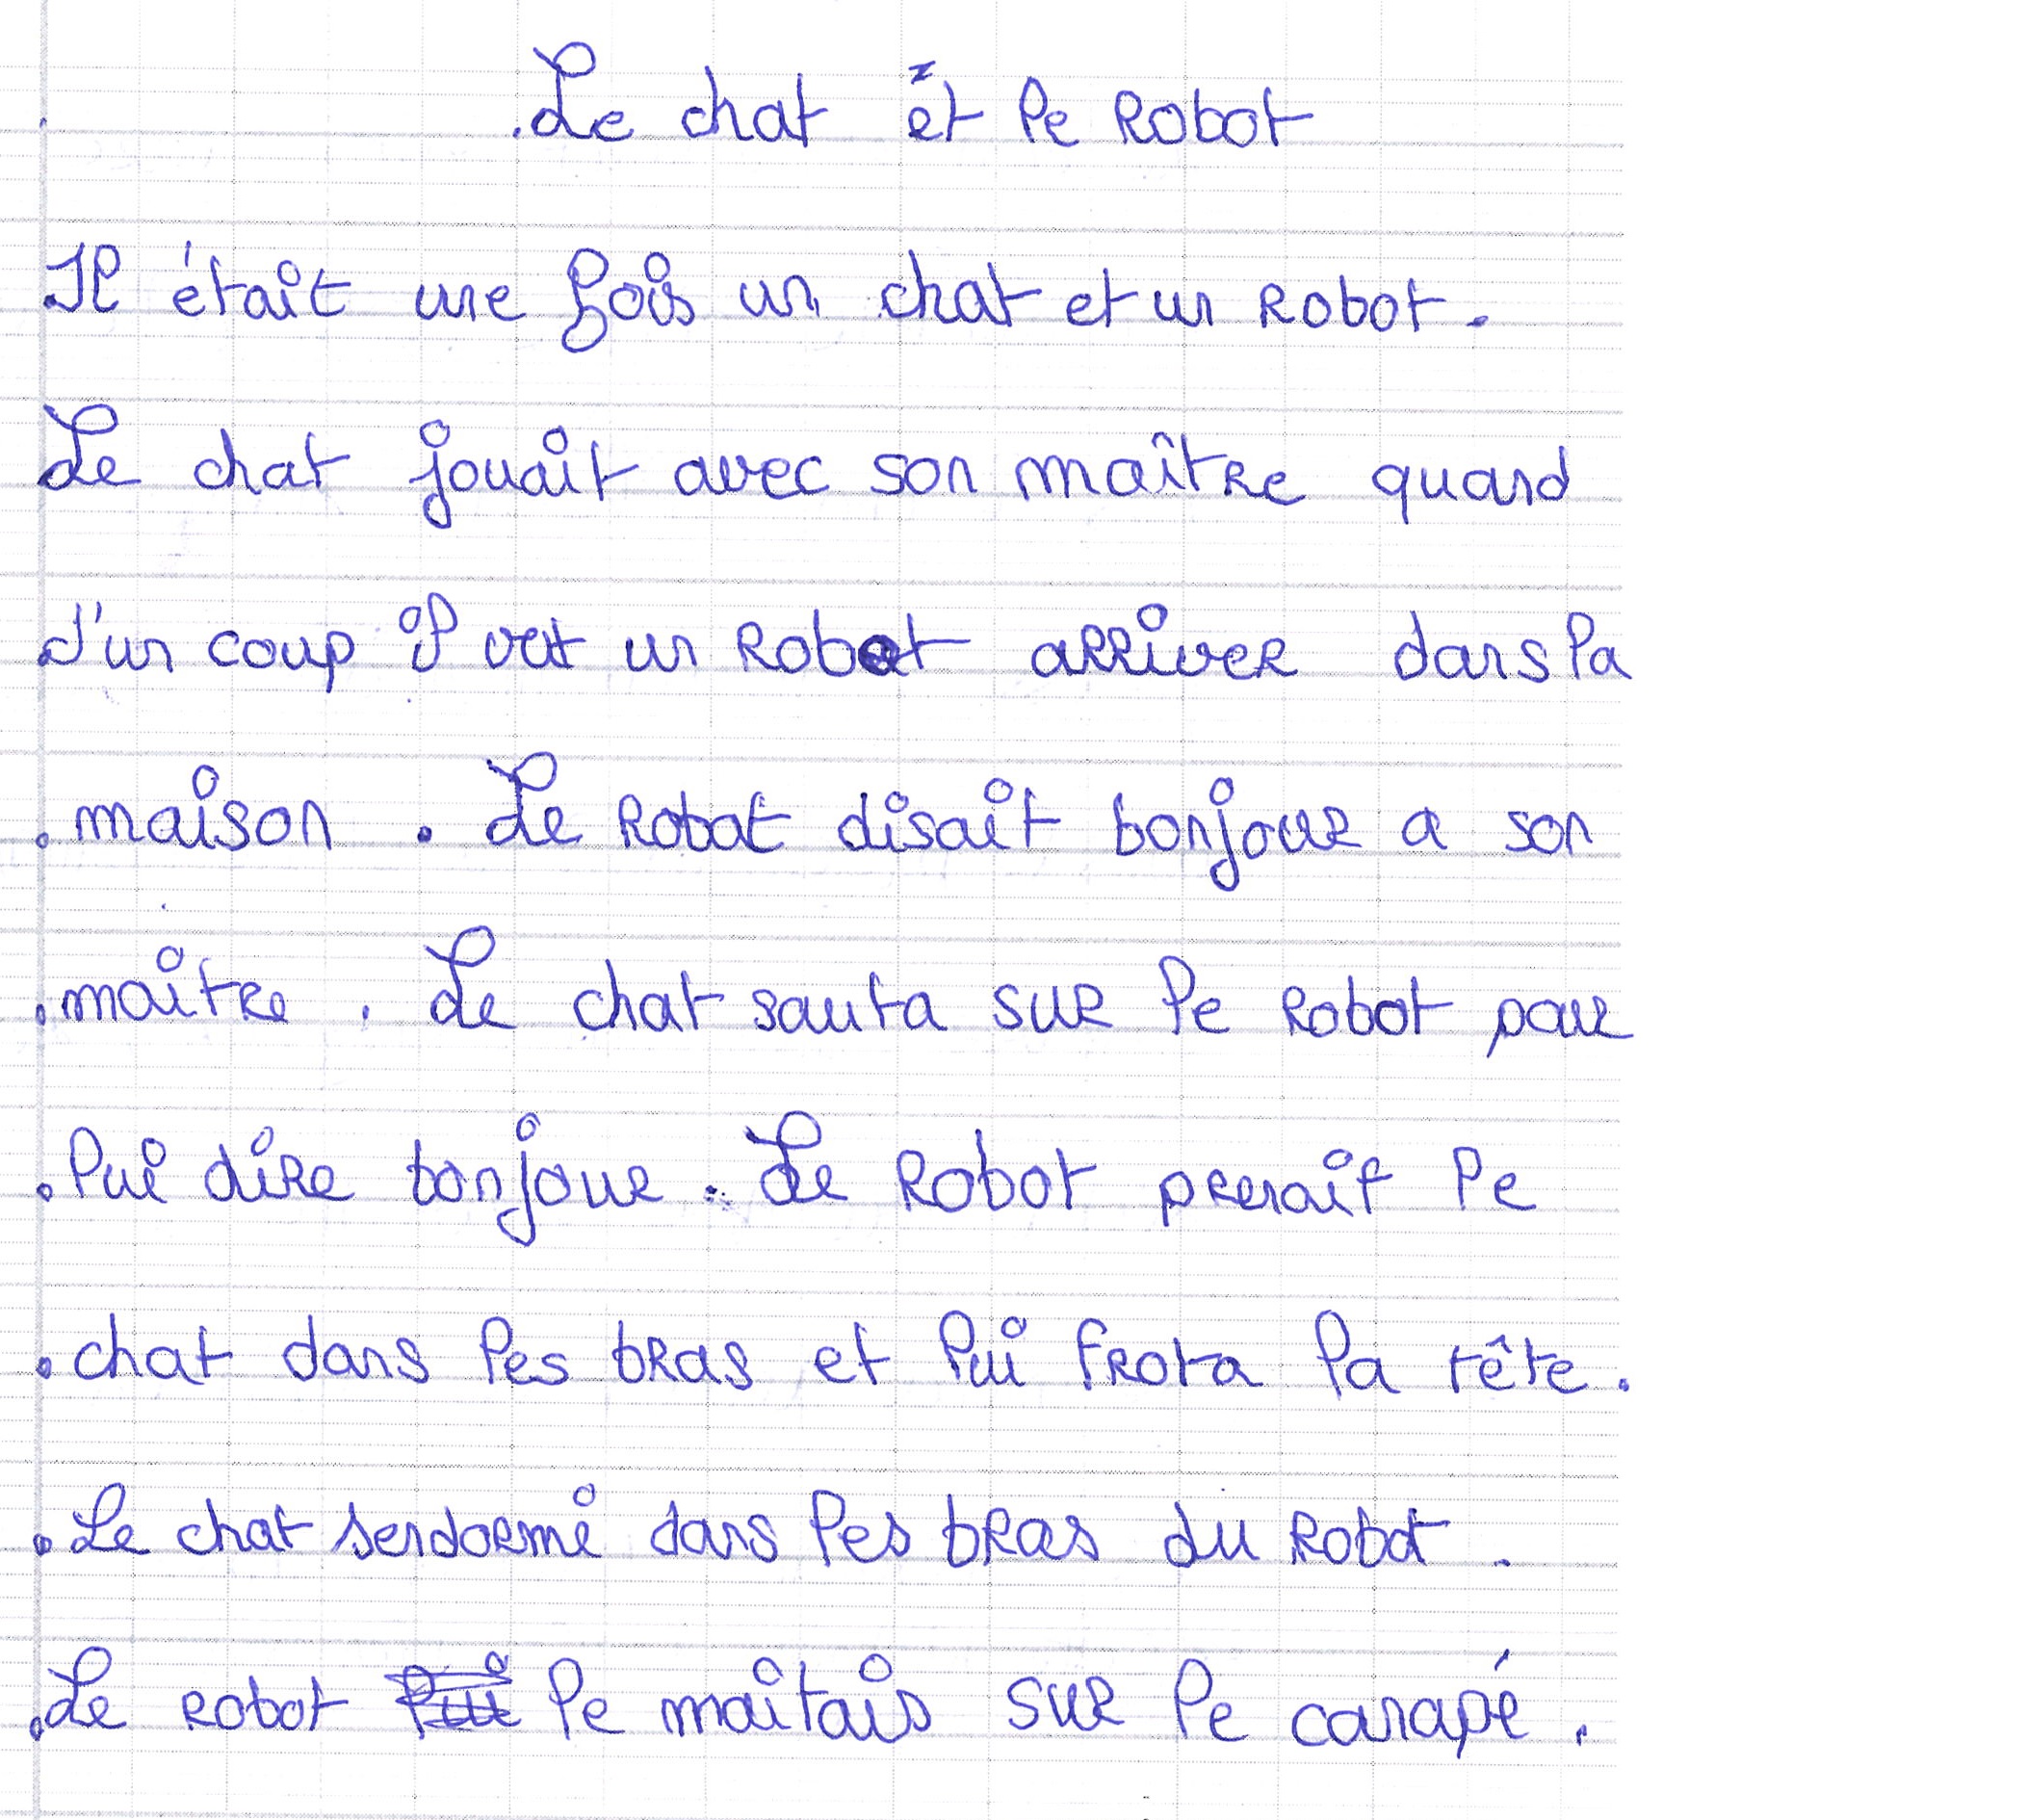 Le chat et le Robot
Il était une fois un chat et un robot.
Le chat jouait avec son maître quand
d'un coup il vit un robot arriver dans la
maison. Le robot disait bonjour a son
maitre. Le chat sauta sur le robot pour
lui dire bonjour. Le robot prenait le
chat dans les bras et lui frota la tête.
Le chat sendormi dans les bras du robot.
Le robot le maitais sur le canapé.